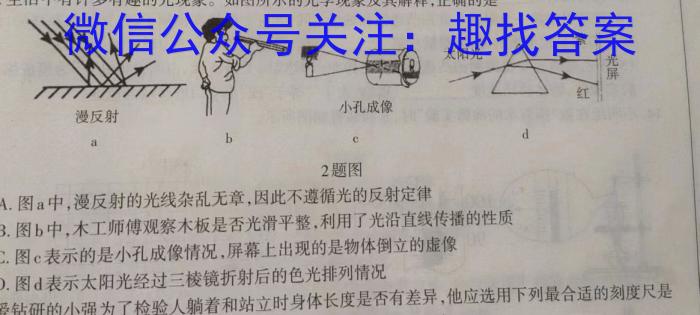 生活中有许多有趣的光现象。如图所示的光学现象及其解释,正确的是
微信公众号关注:趣找答案
太阳光
光屏
红
漫反射
小孔成像
a
b
c
d
2题图
A. 图a中,漫反射的光线杂乱无章,因此不遵循光的反射定律
B. 图b中,木工师傅观察木板是否光滑平整,利用了光沿直线传播的性质
C. 图c表示的是小孔成像情况,屏幕上出现的是物体倒立的虚像
D. 图d表示太阳光经过三棱镜折射后的色光排列情况
爱钻研的小强为了检验人躺着和站立时身体长度是否有差异,他应选用下列最合适的刻度尺是